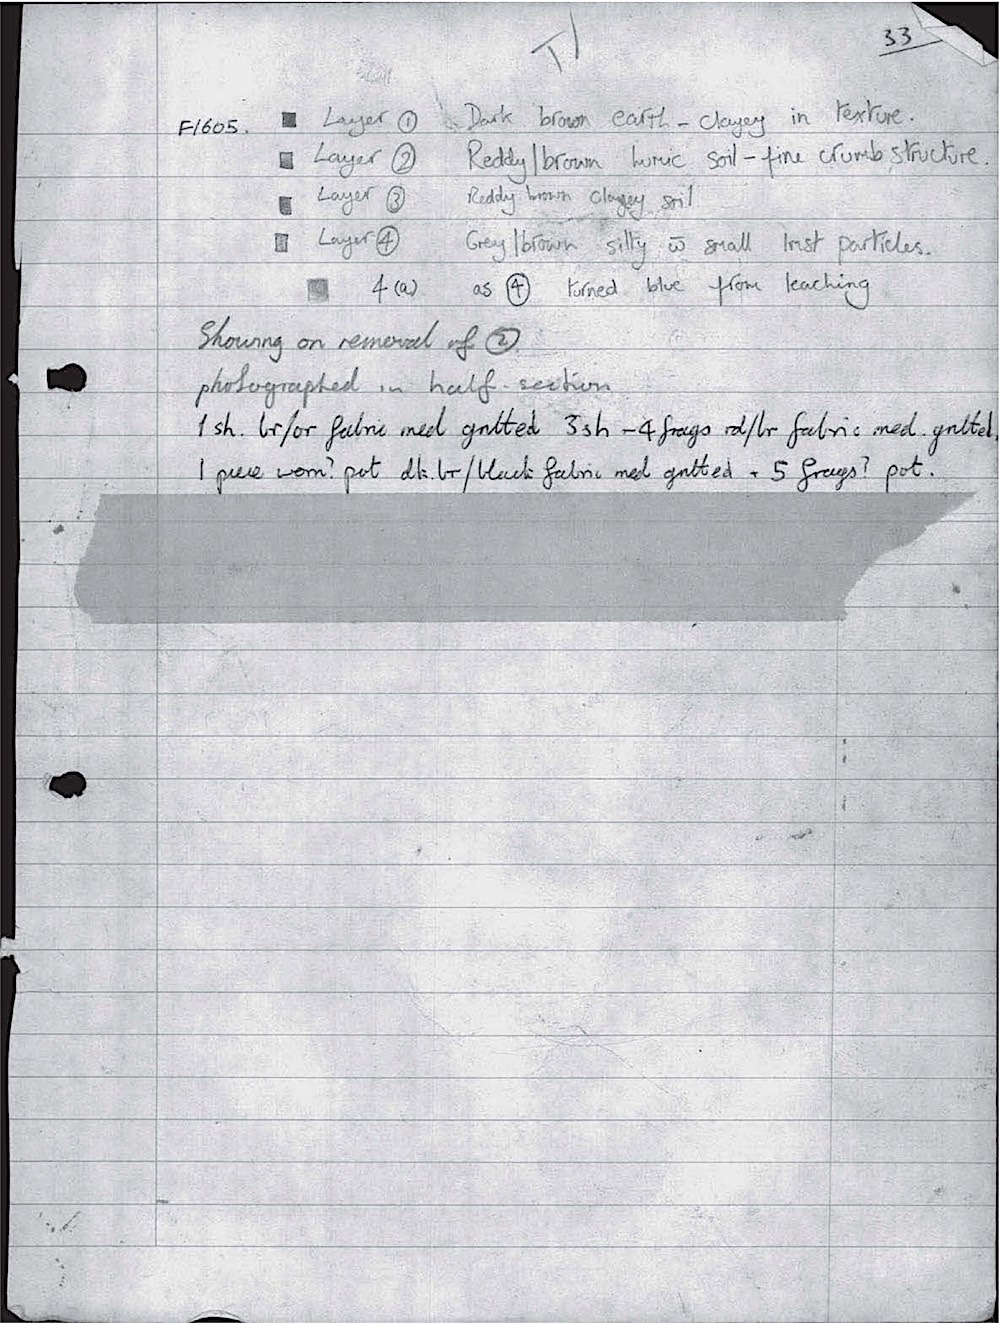 33
F1605. Layer ① Dark brown earth - clayey in texture.
Layer ② Reddy/brown humic soil - fine crumb structure.
Layer ③ Reddy brown clayey soil
Layer ④ Grey/brown silty c̄ small lmst particles.
4(a) as ④ turned blue from leaching
Showing on removal of ②
photographed in half-section
1 sh. br/or fabric med gritted 3sh - 4 frags rd/br fabric med. gritted.
1 piece worn? pot dk.br/black fabric med gritted + 5 frags? pot.